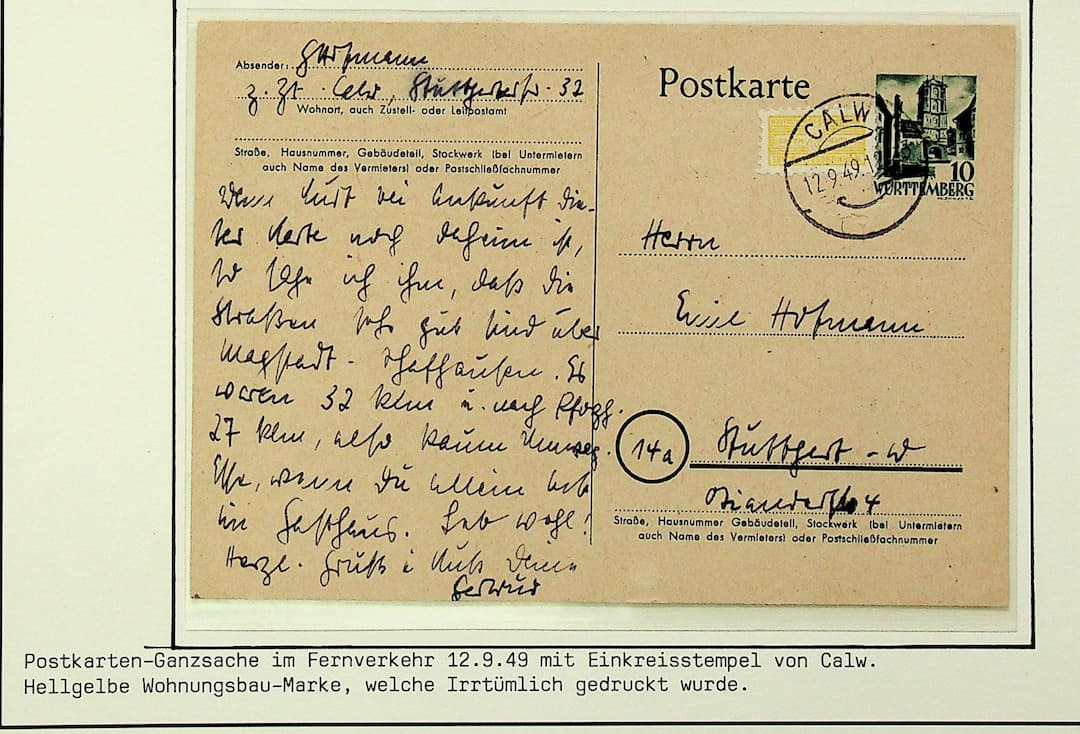 Absender: G. Hofmann
z. Zt. Calw, Stuttgarterstr. 32
Wohnort, auch Zustell- oder Leitpostamt
Straße, Hausnummer, Gebäudeteil, Stockwerk (bei Untermietern
auch Name des Vermieters) oder Postschließfachnummer
Wenn Kurt bei Ankunft die-
ser Karte noch daheim ist,
so sage ich ihm, daß die
Straßen sehr gut sind über
Magstadt - Schafhausen. Es
waren 32 klm u. nach Pfozh.
27 klm, also kaum Umweg.
Esse, wenn Du allein bist
im Gasthaus. Leb wohl!
Herzl. Gruß u. Kuß Deine
Gertrud
Postkarte
CALW
12.9.49.12
10
WÜRTTEMBERG
Herrn
Hofmann
14a Stuttgart - W
4
Straße, Hausnummer Gebäudeteil, Stockwerk (bei Untermietern
auch Name des Vermieters) oder Postschließfachnummer
Postkarten-Ganzsache im Fernverkehr 12.9.49 mit Einkreisstempel von Calw.
Hellgelbe Wohnungsbau-Marke, welche Irrtümlich gedruckt wurde.